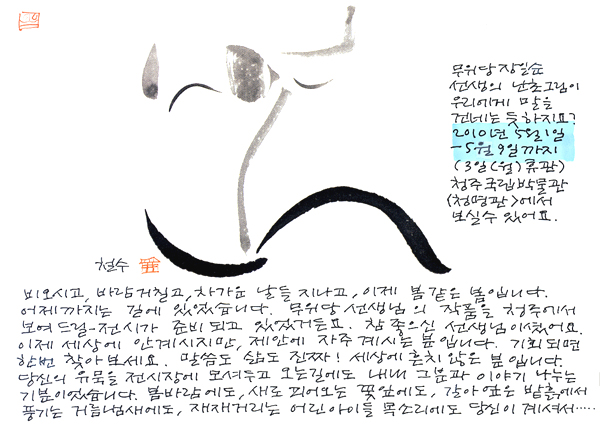 무위당 장일순
선생의 난초그림이
우리에게 말을
건네는 듯 하지요?
2010년 5월 1일
-5월 9일까지
(3일(월)휴관)
청주국립박물관
<청명관>에서
보실 수 있어요.
철수
비오시고, 바람거칠고, 차가운 날들 지나고, 이제 봄같은 봄입니다.
어제까지는 길에 있었습니다. 무위당 선생님의 작품을 청주에서
보여드릴-전시가 준비되고 있었거든요. 참 좋으신 선생님이셨어요.
이제 세상에 안계시지만, 제안에 자주 계시는 분입니다. 기회되면
한번 찾아보세요. 말씀도 삶도 진짜! 세상에 흔치 않은 분입니다.
당신의 유묵들 전시장에 모셔두고 오는길에도 내내 그분과 이야기 나누는
기분이었습니다. 봄바람에도, 새로 피어오는 꽃잎에도, 갈아엎은 밭흙에서
풍기는 거름냄새에도, 재재거리는 어린아이들 목소리에도 당신이 계셔서·····